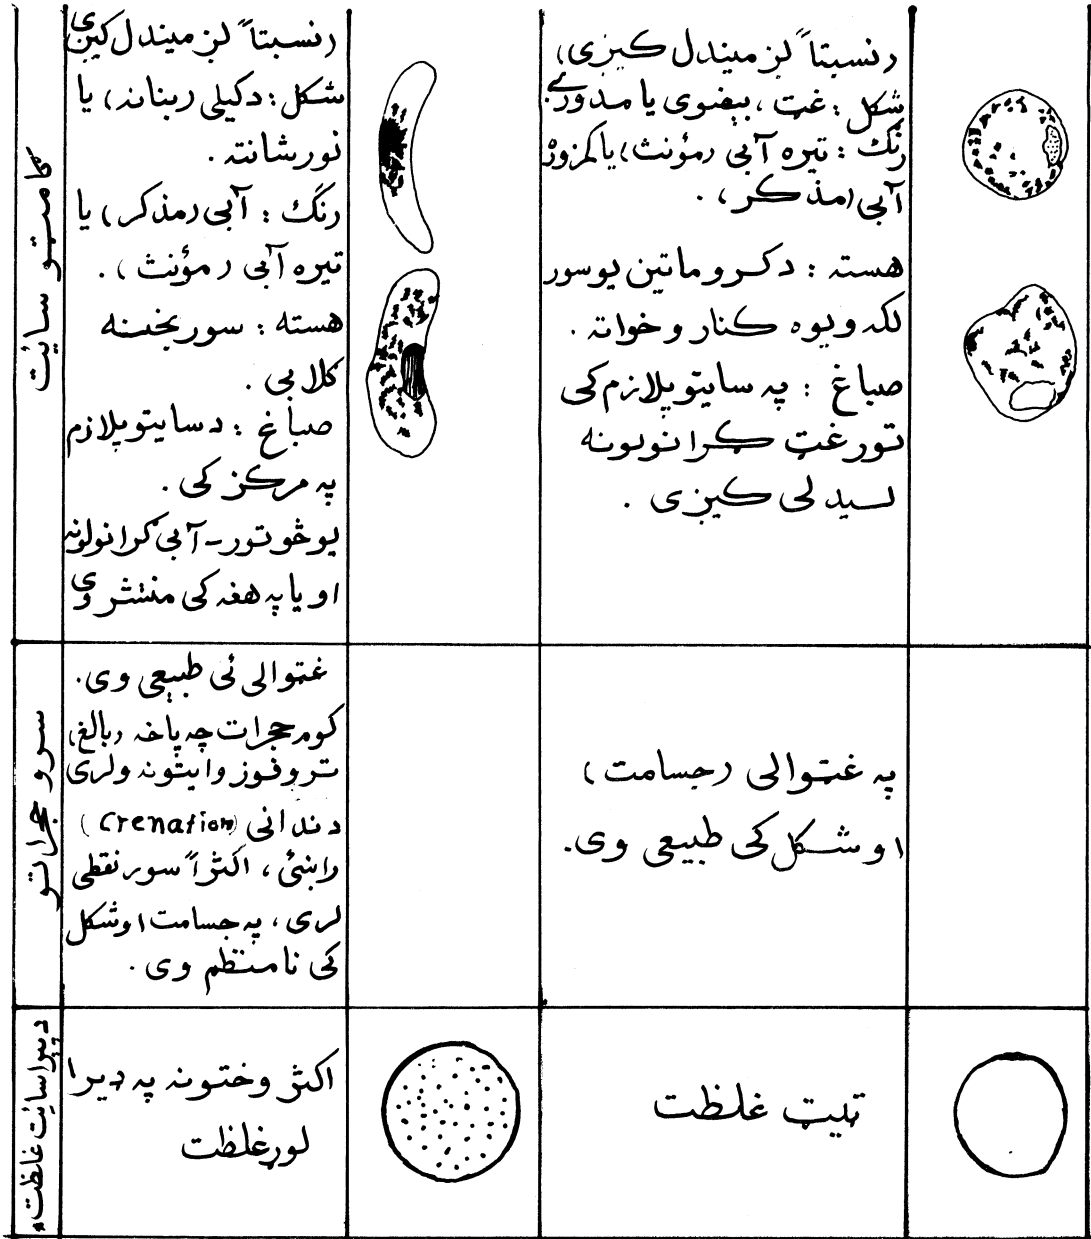 گامیتوسایت
(نسبتاً لږ میندل کیږی)
شکل : دکیلی (بنانه) یا
نورشانته .
رنګ : آبی (مذکر) یا
تیره آبی (مؤنث) .
هسته : سوربخنه
ګلابی .
صباغ : دسایتوپلازم
په مرکز کی .
یوڅوتور-آبی ګرانولونه
اویاپه هغه کی منتشر وی
(نسبتاً لږ میندل کیږی)
شکل : غټ ، بیضوی یا مدور
رنګ : تیره آبی (مؤنث) یا کمزوری
آبی (مذکر) .
هسته : دکروماتین یوسور
لکه ویوه کنار وخواته .
صباغ : په سایتوپلازم کی
تور غټ ګرانولونه
لسیدلی کیږی .
سرو حجراتو
غټوالی ئی طبیعی وی .
کوم حجرات چه پاخه (بالغ)
تروفوزوایټونه ولری
دندانی (Crenation)
راښئ ، اکثراً سور نقطی
لری ، په جسامت اوشکل
کی نامنتظم وی .
په غټوالی (جسامت)
اوشکل کی طبیعی وی .
دپراسایت غلظت
اکثر وختونه په ډیرا
لوړ غلظت
ټیټ غلظت